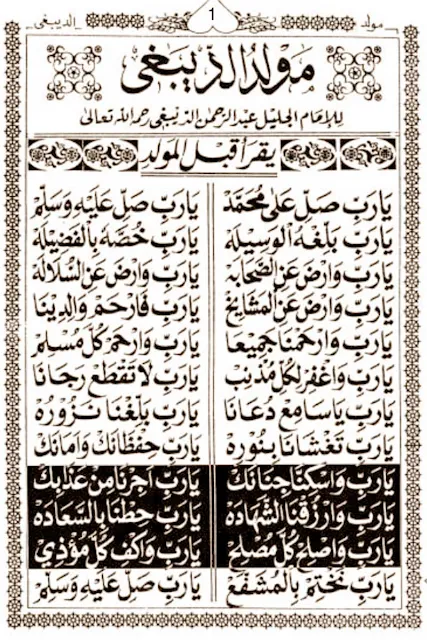 مولد ١ الديبغى
مولد الديبغى
للإمام الجليل عبد الرحمن الديبغى رحمه الله تعالى
يقرأ قبل المولد
يَارَبِّ صَلِّ عَلَى مُحَمَّدْ يَارَبِّ صَلِّ عَلَيْهِ وَسَلِّمْ
يَارَبِّ بَلِّغْهُ الْوَسِيلَهْ يَارَبِّ خُصَّهُ بِالْفَضِيلَهْ
يَارَبِّ وَارْضَ عَنِ الصَّحَابَهْ يَارَبِّ وَارْضَ عَنِ السُّلَالَهْ
يَارَبِّ وَارْضَ عَنِ الْمَشَايِخْ يَارَبِّ فَارْحَمْ وَالِدِينَا
يَارَبِّ وَارْحَمْنَا جَمِيعًا يَارَبِّ وَارْحَمْ كُلَّ مُسْلِمْ
يَارَبِّ وَاغْفِرْ لِكُلِّ مُذْنِبْ يَارَبِّ لَا تَقْطَعْ رَجَانَا
يَارَبِّ يَاسَامِعْ دُعَانَا يَارَبِّ بَلِّغْنَا نَزُورُهْ
يَارَبِّ تَغْشَانَا بِنُورِهْ يَارَبِّ حِفْظَانَكْ وَامَانَكْ
يَارَبِّ وَاسْكِنَّا جِنَانَكْ يَارَبِّ اَجِرْنَا مِنْ عَذَابِكْ
يَارَبِّ وَارْزُقْنَا الشَّهَادَهْ يَارَبِّ حِطْنَا بِالسَّعَادَهْ
يَارَبِّ وَاصْلِحْ كُلَّ مُصْلِحْ يَارَبِّ وَاكْفِ كُلَّ مُؤْذِي
يَارَبِّ نَخْتِمْ بِالْمُشَفَّعْ يَارَبِّ صَلِّ عَلَيْهِ وَسَلِّمْ